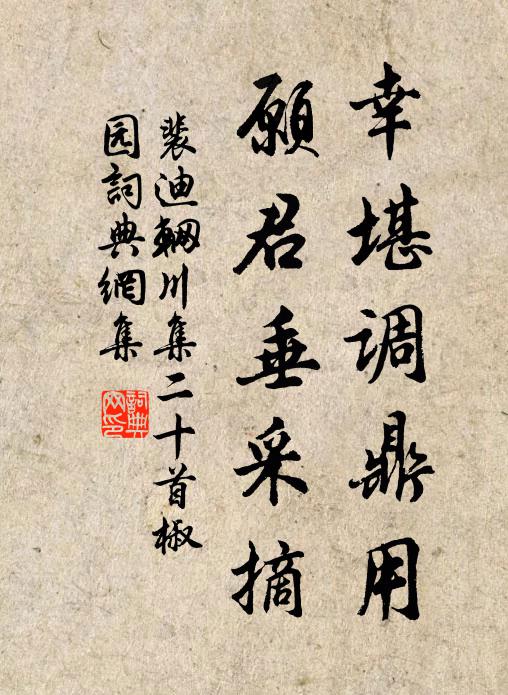 幸堪调鼎用
願君垂采摘
裴迪輞川集二十首椒
园詞典網集
詞典网印